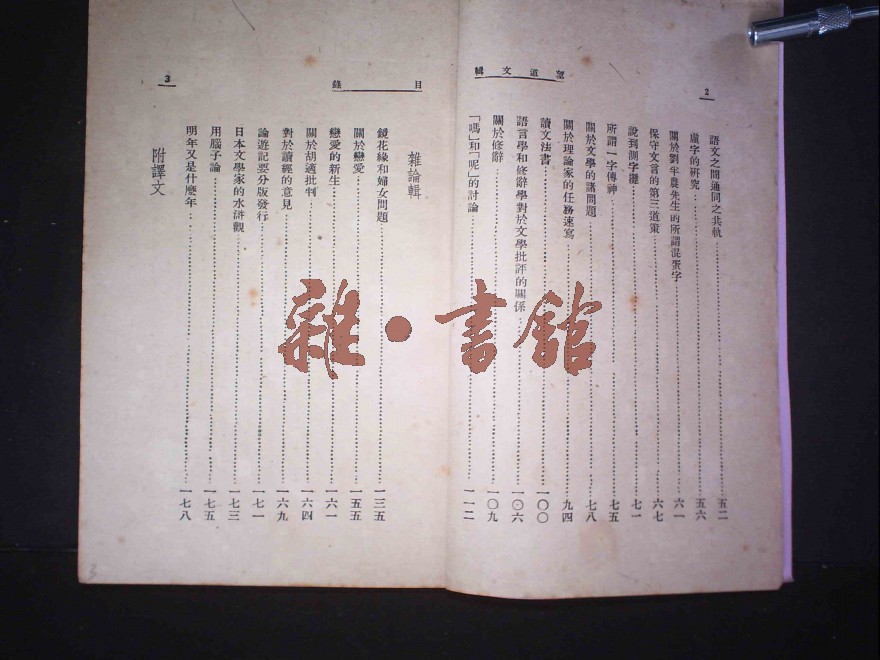 望道文輯
2
語文之間通同之共軌……五二
虛字的研究……五六
關於劉半農先生的所謂混蛋字……六一
保守文言的第三道策……六七
說到測字攤……七一
所謂一字傳神……七五
關於文學的諸問題……七八
關於理論家的任務速寫……九四
讀文法書……一〇〇
語言學和修辭學對於文學批評的關係……一〇六
關於修辭……一〇九
「嗎」和「呢」的討論……一一二
目錄
3
雜論輯
鏡花緣和婦女問題……一三五
關於戀愛……一五五
戀愛的新生……一六一
關於胡適批判……一六四
對於讀經的意見……一六九
論遊記要分版發行……一七一
日本文學家的水滸觀……一七三
用腦子論……一七五
明年又是什麼年……一七八
附譯文
雜·書館
3